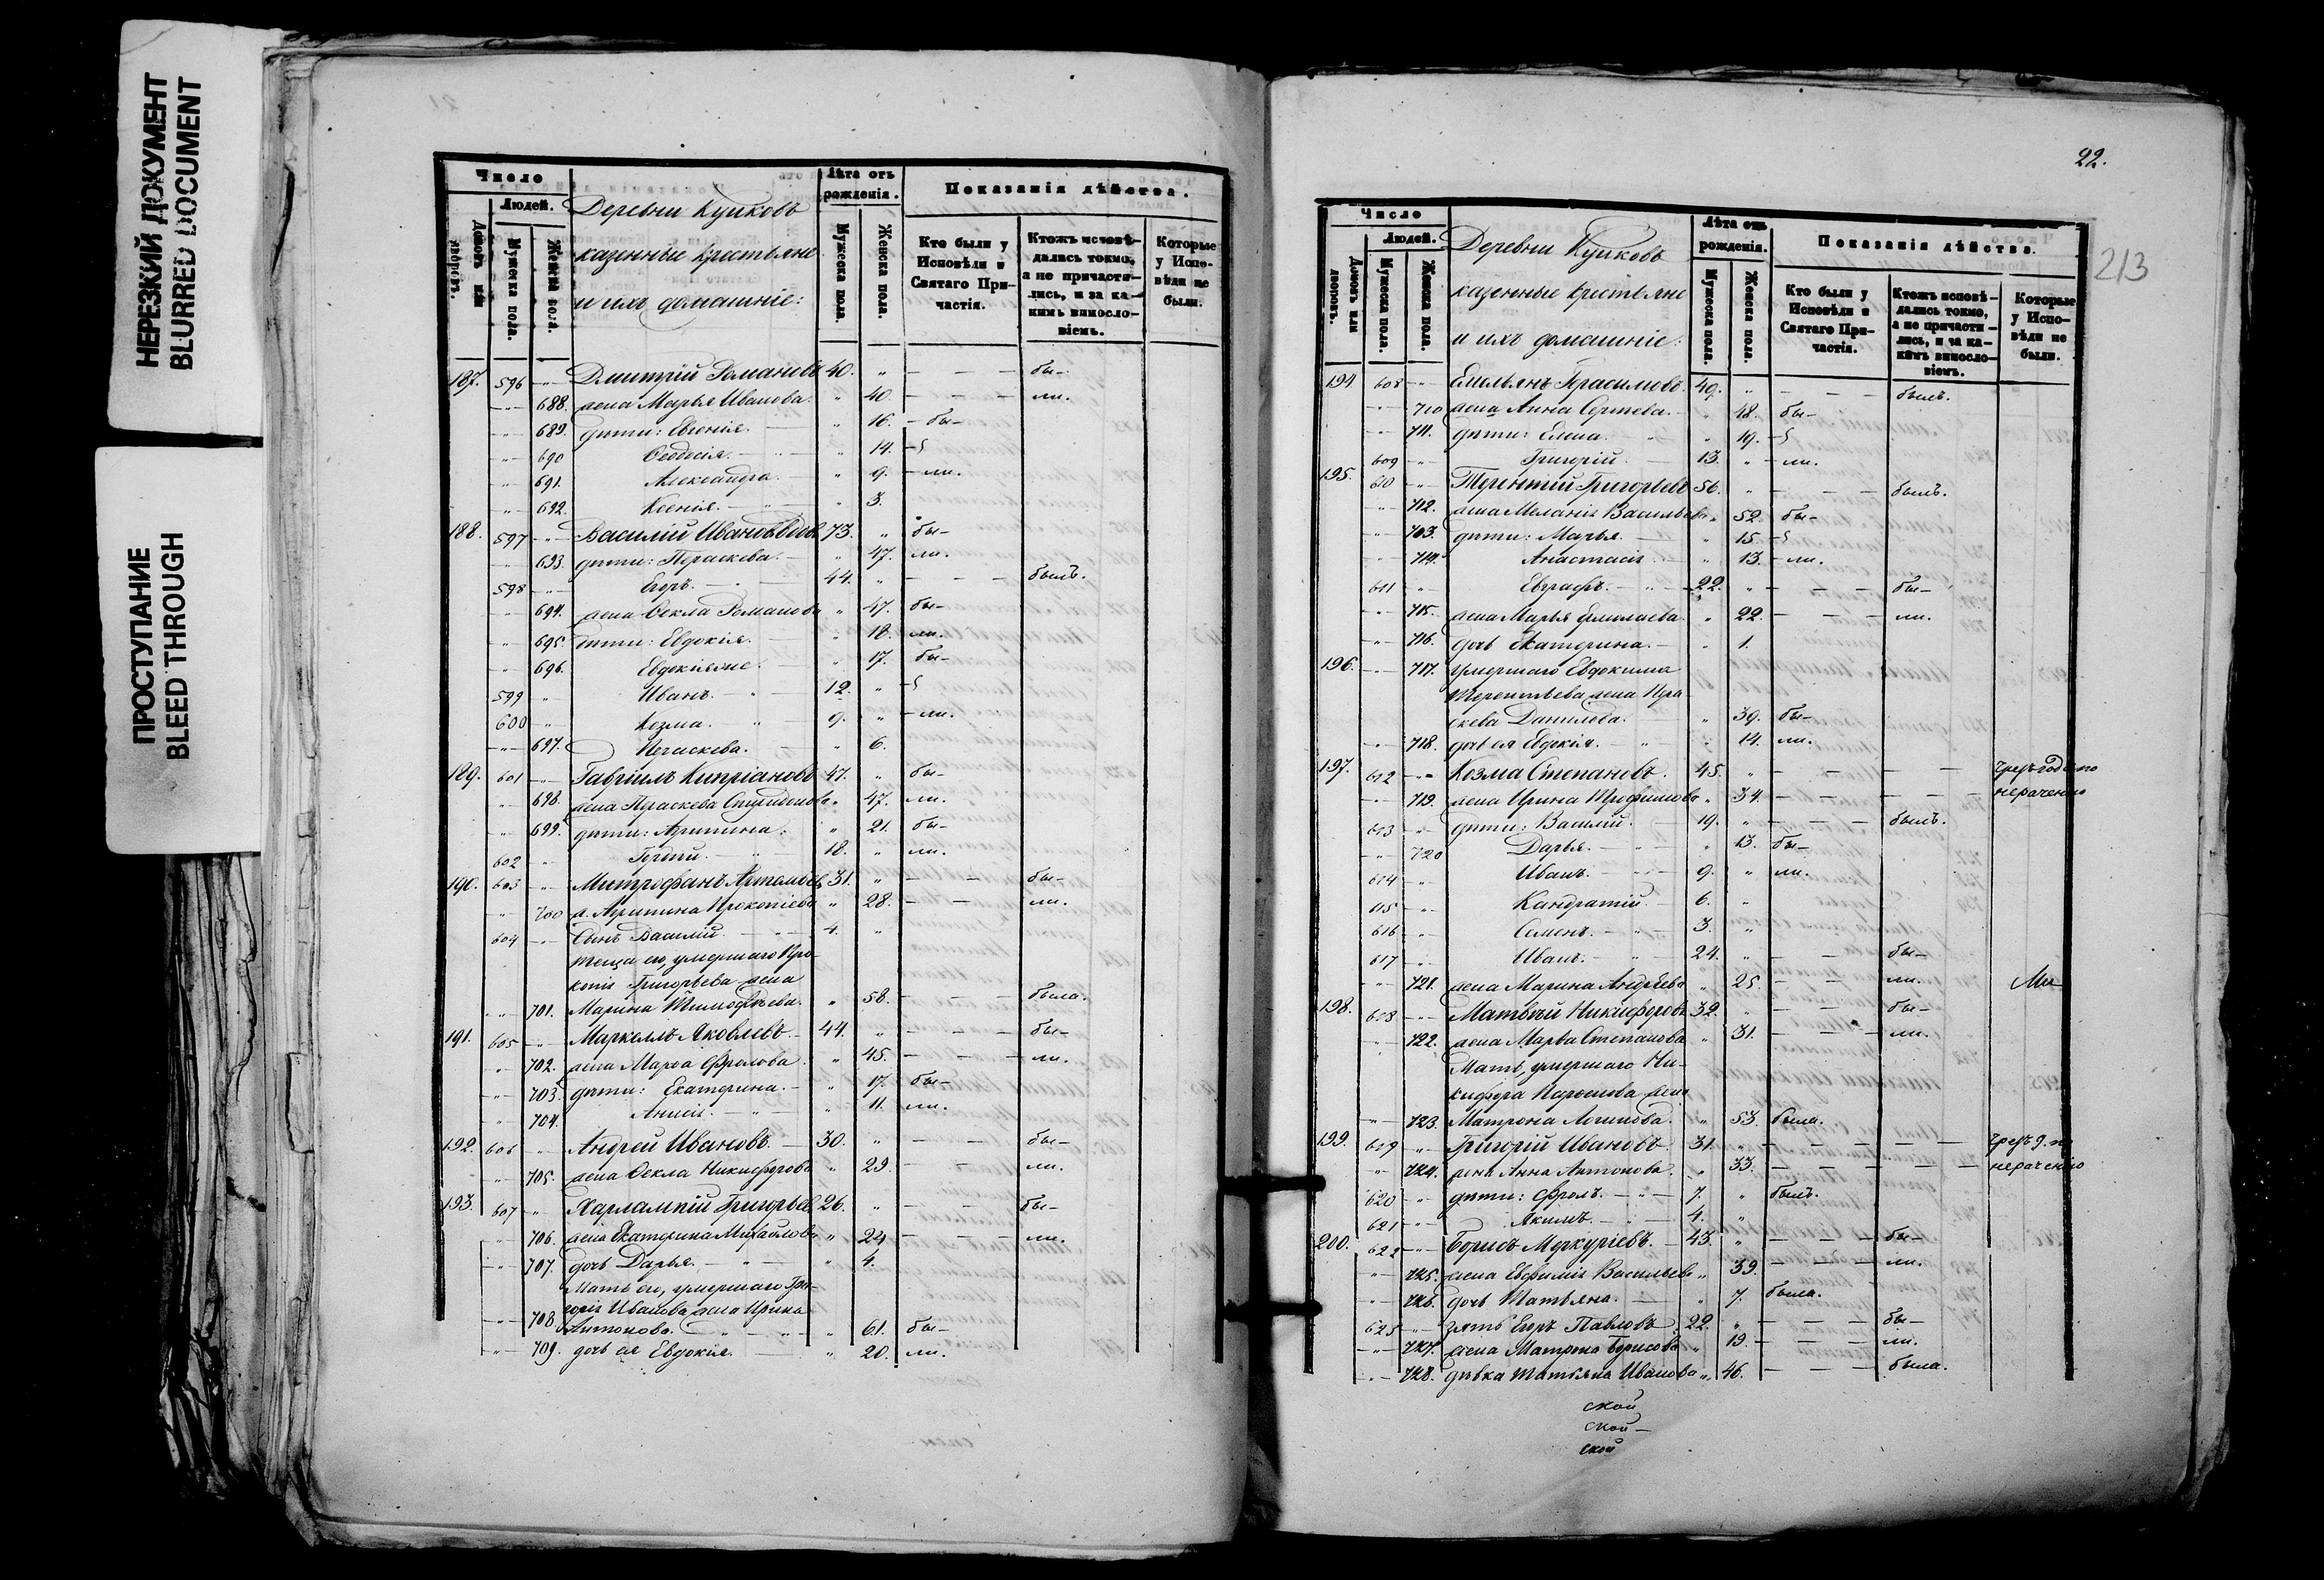 НЕРЕЗКИЙ ДОКУМЕНТ
BLURRED DOCUMENT
ПРОСТУПАНИЕ
BLEED THROUGH
Число
Людей.
Домовъ или дворовъ.
Мужеска пола.
Женска пола.
Деревни Кушковъ
казенные крестьяне
и ихъ домашніе:
Лѣта отъ рожденія.
Мужеска пола.
Женска пола.
Показанія дѣйства.
Кто были у Исповѣди и Святаго Причастія.
Ктожъ исповѣдались токмо, а не причастились, и за какимъ винословіемъ.
Которые у Исповѣди не были.
187. 596 -"- Дмитрій Романовъ 40. " — — — бы-
-"- 688. жена Марья Иванова. " 40. — — — ли.
-"- 689. дѣти: Евгенія. — " 16. — бы-
-"- 690 Ѳеодосія. — " 14.
-"- 691. Александра. — " 9. — ли.
-"- 692. Ксенія. — " 3.
188. 597 -"- Василій Ивановъ вдовъ 73. " бы-
" 693. дѣти: Параскева. — " 47. ли.
598 -"- Егоръ. — 44. " — — — былъ.
" 694. жена Ѳекла Романова " 47. бы-
" 695. дѣти: Евдокія. — " 18. ли.
" 696. Евдокія же. — " 17. бы-
599 " Иванъ. — " — 12. "
600 -"- Козма. — " — 9. " — ли.
-"- 697. Параскева. — " 6.
189. 601 -"- Гавріилъ Кипріановъ 47. " бы-
" 698. жена Параскева " 47. ли.
-"- 699. дѣти: Агрипина. " 21. бы-
602 -"- — " — 18. " ли.
190. 603 -"- Митрофанъ Артемьевъ 31. " — — бы-
-"- 700 ж. Агрипина Прокопіева " 28. — — ли.
604 -"- Сынъ Василій. — " — 4. "
теща его, умершаго Про-
копія Григорьева жена
-"- 701. Марина Тимофѣева. " 58. — — — была.
191. 605 -"- Маркеллъ Яковлевъ. 44. " — — — бы-
" 702. жена Марѳа Фролова. " 45. — — — ли.
-"- 703. дѣти: Екатерина. — " 17. бы-
" 704. Анисія. — " — " 11. ли.
192. 606 " Андрей Ивановъ. — 30. " — — бы-
" 705. жена Ѳекла Никифорова " 29. — — ли.
193. 607 " Харлампій Григорьевъ 26. " — — бы-
" 706. жена Екатерина Михайлова " 24 — — — ли.
-"- 707. дочь Дарья. — " — " 4.
Мать его, умершаго Гри-
горія Иванова жена Ирина
-"- 708. Антонова. — " — " — " 61. бы-
-"- 709. дочь ея Евдокія. — " 20. ли.
22.
213
Число
Людей.
Домовъ или дворовъ.
Мужеска пола.
Женска пола.
Деревни Кушковъ
казенные крестьяне
и ихъ домашніе:
Лѣта отъ рожденія.
Мужеска пола.
Женска пола.
Показанія дѣйства.
Кто были у Исповѣди и Святаго Причастія.
Ктожъ исповѣдались токмо, а не причастились, и за какимъ винословіемъ.
Которые у Исповѣди не были.
194 608 -"- Емельянъ Герасимовъ. 49. " — — — былъ.
-"- 710 жена Анна Сергѣева. — " 48. бы-
-"- 711. дѣти: Елена. — " — " 19.
609 -"- Григорій. — 13. " — ли.
195. 610 -"- Терентій Григорьевъ 56. " — — — былъ.
-"- 712. жена Меланія Васильева " 52. бы-
-"- 703. дѣти: Марья. — " 15.
-"- 714. Анастасія. — " 13. — ли.
611 " Евграфъ. — " — 22. " — — — бы-
-"- 715. жена Марья Ермилаева. " 22. — — — ли.
-"- 716. дочь Екатерина. — " 1.
196. -"- 717. умершаго Евдокима
Терентьева жена Пра-
скева Данилова. — " 39. бы-
-"- 718. дочь ея Евдокія. — " 14. ли.
197. 612 -"- Козма Степановъ. 45. " — — — — чрезъ годъ по
-"- 719. жена Ирина Трофимова " 34. — — — — — нераченію
613 -"- дѣти: Василій. — 19. " — — — былъ.
-"- 720 Дарья. — " — " 13. бы-
614 -"- Иванъ. — " — 9. " ли.
615 -"- Кандратій. — 6. "
616 -"- Семенъ. — " — 3. "
617 -"- Иванъ. — " — 24. " — — бы-
-"- 721. жена Марина Андрѣева " 25. — — ли.
198. 608 -"- Матвѣй Никифоровъ 32. " — — бы-
-"- 722. жена Марѳа Степанова " 31. — — — ли.
Мать, умершаго Ни-
кифора жена
-"- 723. Матрона Логинова. " 53. была.
199. 609 -"- Григорій Ивановъ. 31. " — — — — чрезъ г. по
-"- 724. жена Анна Антонова. " 33. — — — — — нераченію
620 " дѣти: Фролъ. — " — 7. " былъ.
621 -"- Якимъ. — " — 4. "
200. 622 -"- Борисъ Меркуріевъ. — 43. " — — — бы-
-"- 725. жена Евфимія Васильева " 39. — — — ли.
-"- 726. дочь Татьяна. — " 7. была.
623 -"- зять Егоръ Павловъ 22. " — — — бы-
-"- 727. жена Матрона Борисова " 19. — — — ли.
-"- 728. дѣвка Татьяна Иванова " 46. — — — была.
ской
ской-
ской